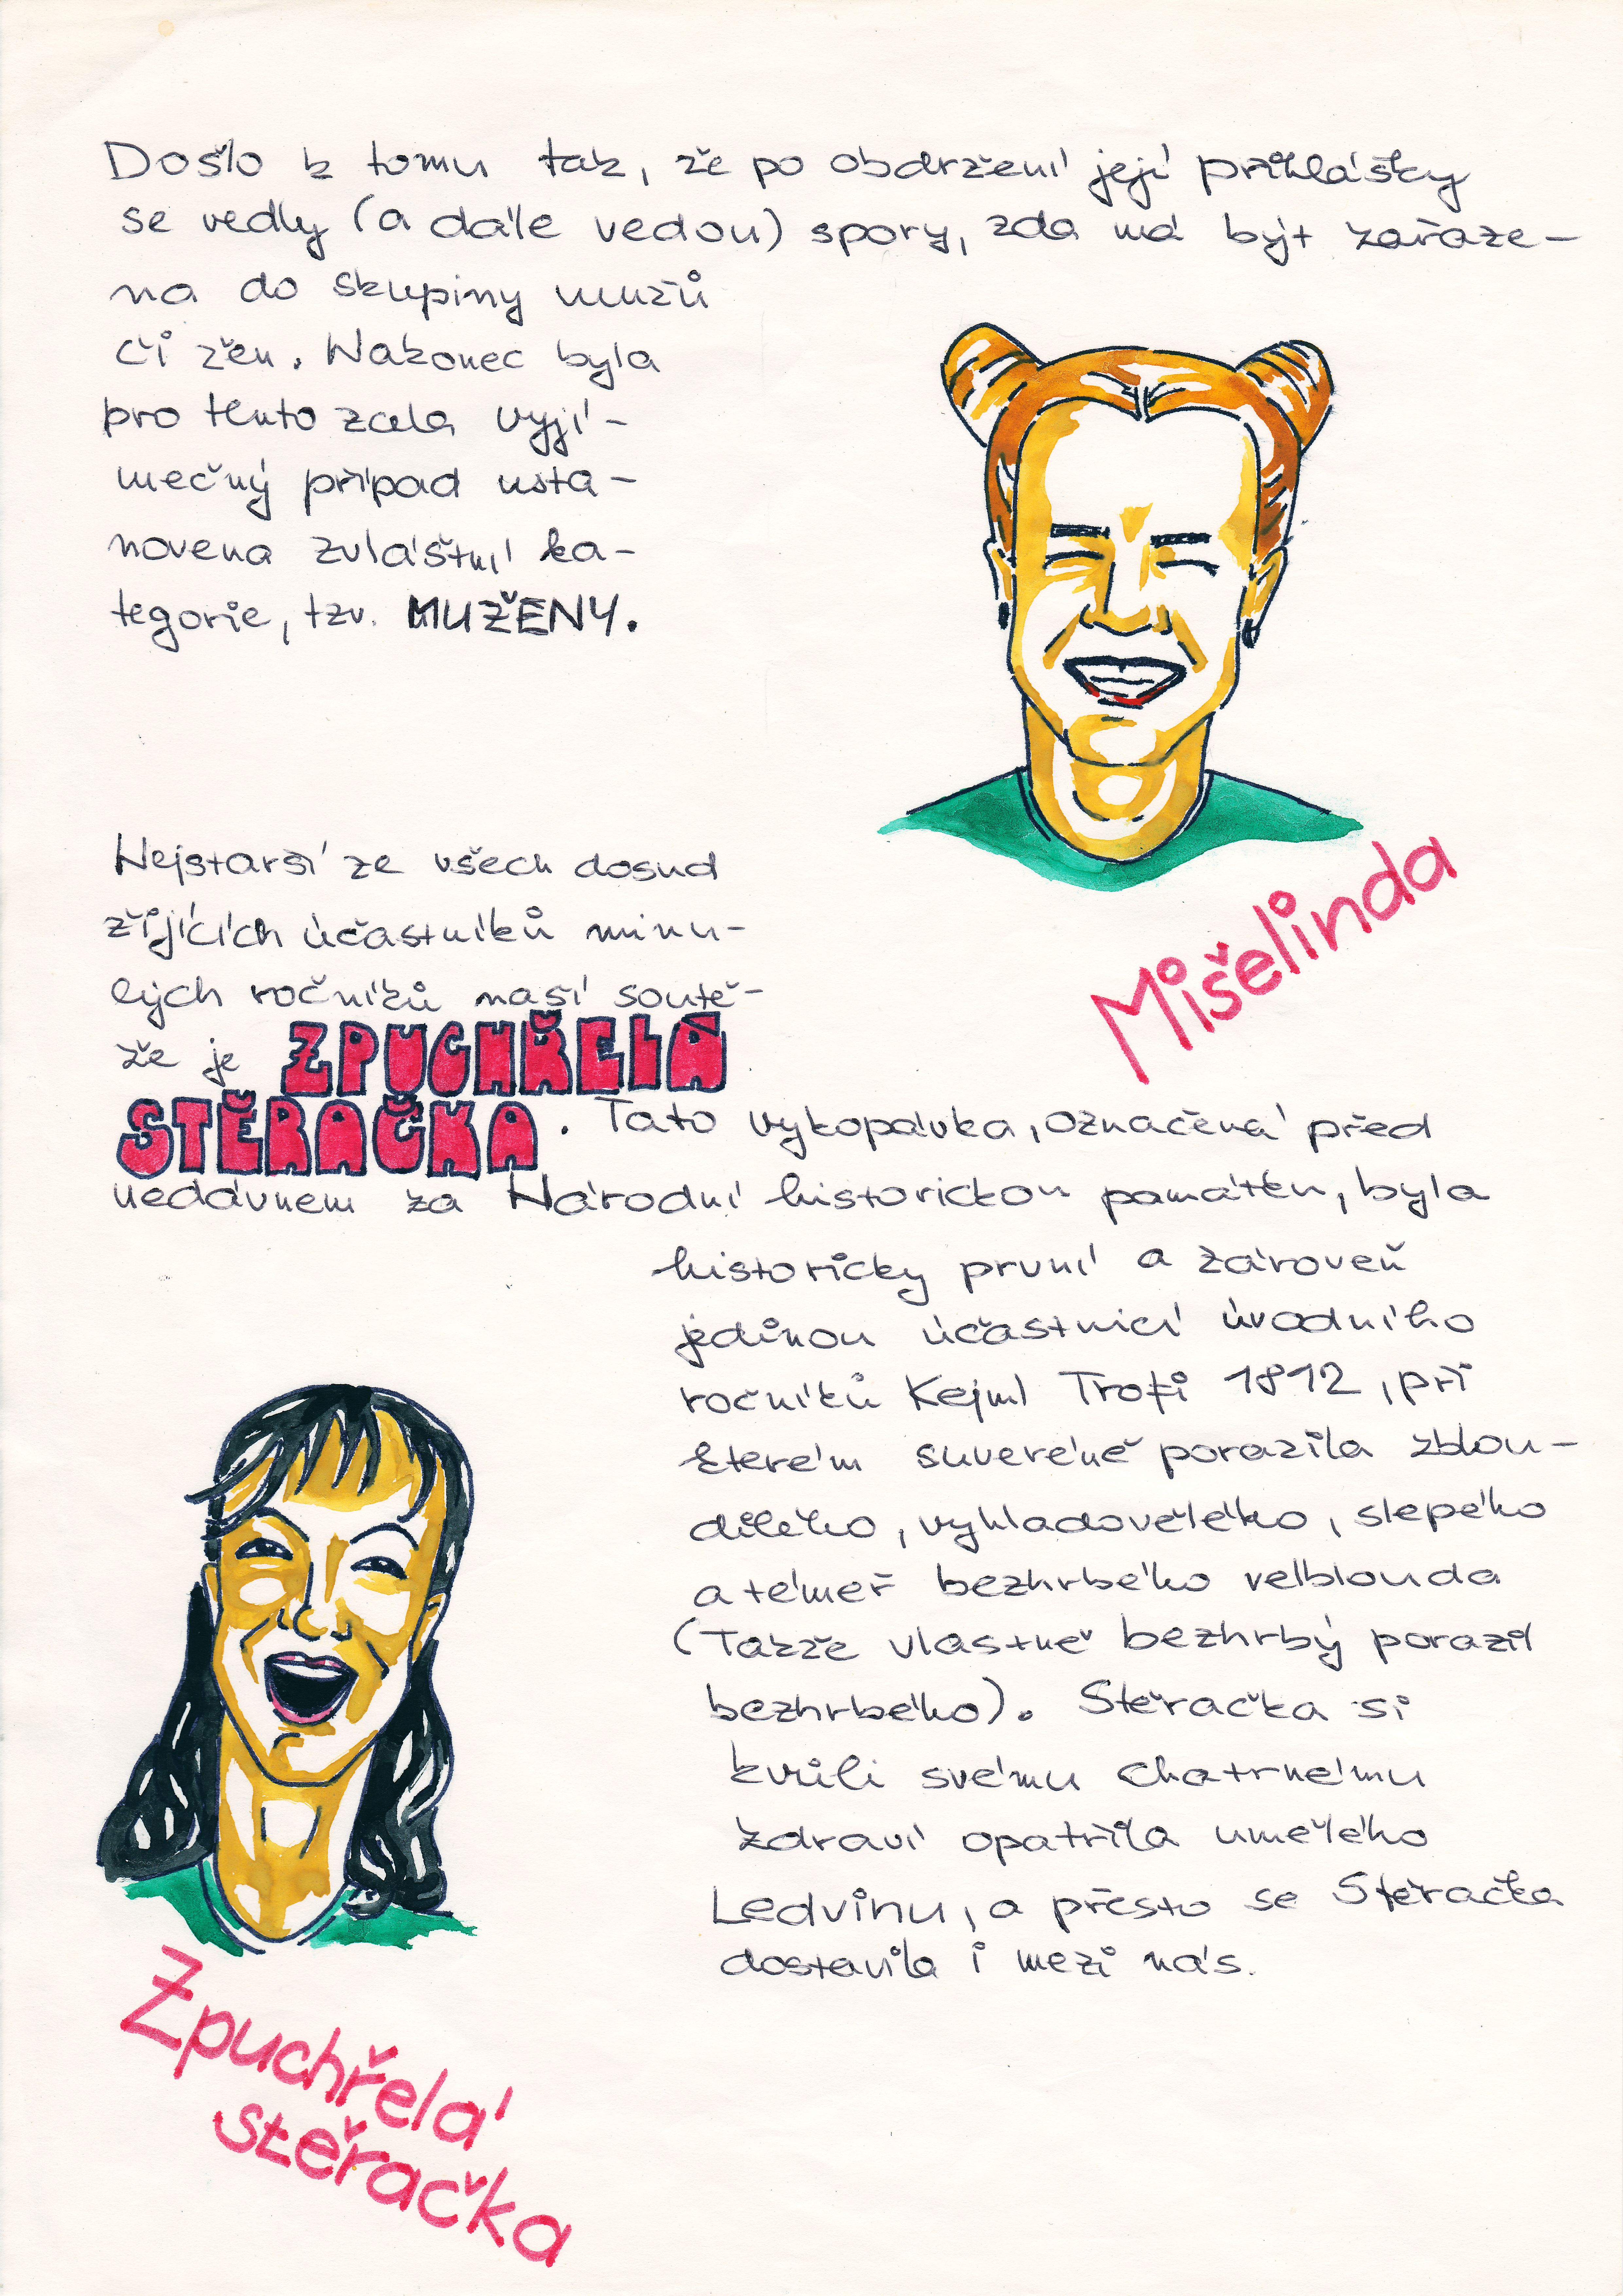 Došlo k tomu tak, že po obdržení její přihlášky
se vedly (a dále vedou) spory, zda má být zařaze-
na do skupiny mužů
či žen. Nakonec byla
pro tento zcela vyjí-
mečný případ usta-
novena zvláštní ka-
tegorie, tzv. MUŽENY.
Mišelinda
Nejstarší ze všech dosud
žijících účastníků minu-
lých ročníků naší soutě-
že je ZPUCHŘELÁ
STĚRAČKA. Tato vykopávka, označená před
nedávnem za Národní historickou památku, byla
historicky první a zároveň
jedinou účastnicí úvodního
ročníků Kejml Trofi 1812, při
kterém suveréně porazila zblou-
dilého, vyhladovělého, slepého
a téměř bezhrbého velblouda
(Takže vlastně bezhrbý porazil
bezhrbého). Stěračka si
kvůli svému chatrnému
zdraví opatřila umělého
Ledvinu, a přesto se Stěračka
dostavila i mezi nás.
Zpuchřelá
stěračka